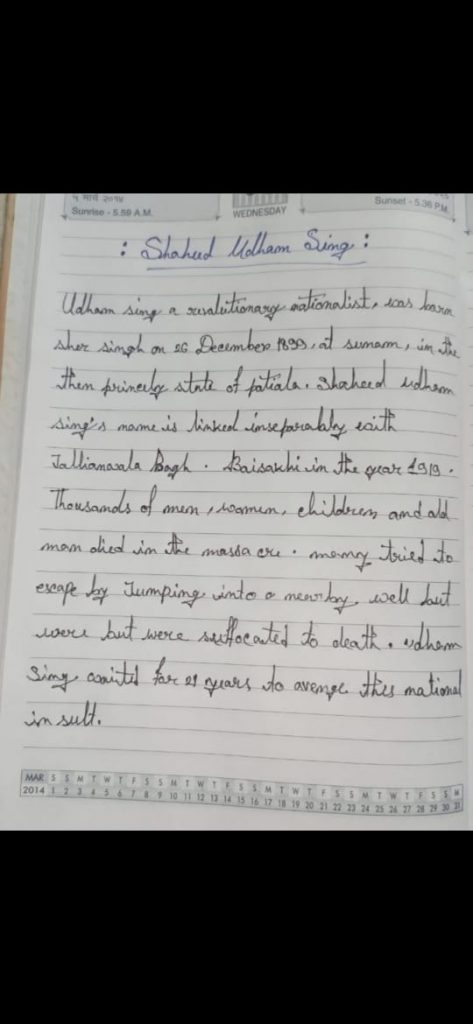 १ मार्च २०१४
Sunrise - 5.59 A.M.
WEDNESDAY
Sunset - 5.36 P.M.
: Shaheed Udham Sing :
Udham sing a revolutionary nationalist, was born
sher singh on 26 December 1899, at sunam, in the
then princely state of patiala. Shaheed udham
sing's name is linked inseparably with
Jallianwala Bagh. Baisakhi in the year 1919.
Thousands of men, women, children and old
man died in the massacre. many tried to
escape by Jumping into a nearby, well but
were but were suffocated to death. udham
Sing waited for 21 years to avenge this national
in sult.
MAR S S M T W T F S S M T W T F S S M T W T F S S M T W T F S S M
2014 1 2 3 4 5 6 7 8 9 10 11 12 13 14 15 16 17 18 19 20 21 22 23 24 25 26 27 28 29 30 31